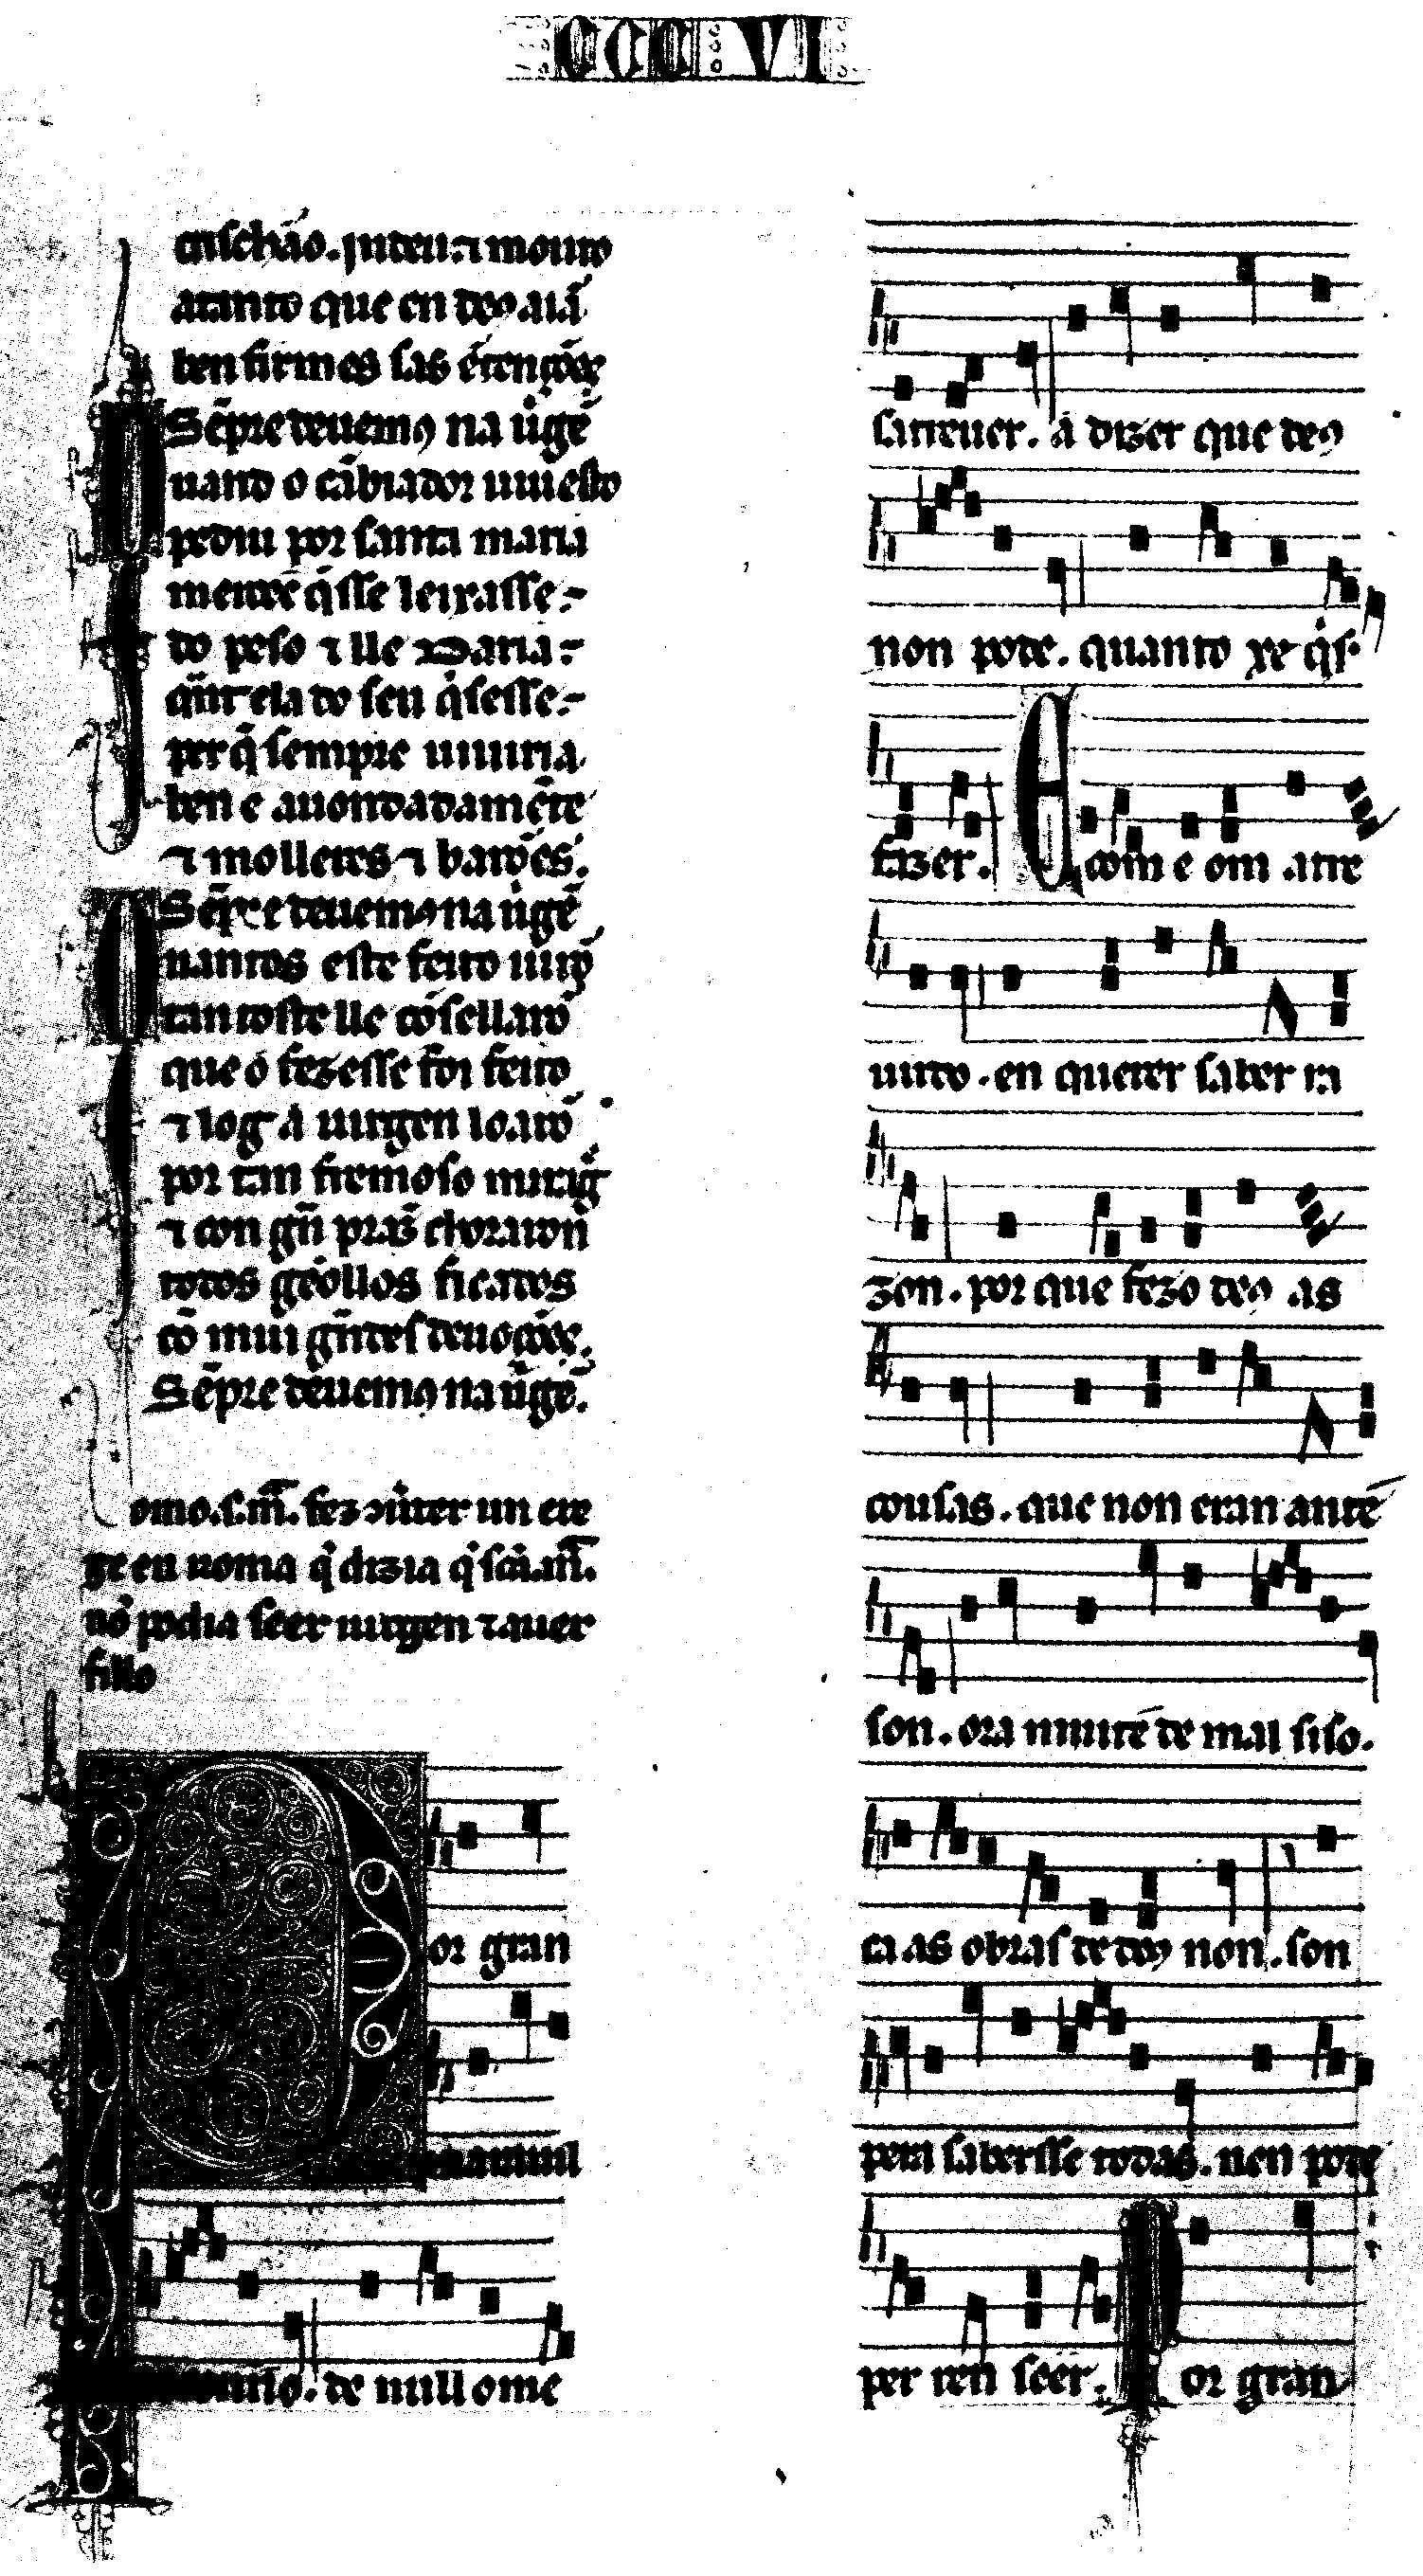 CCC VI
crischão. judeu. ⁊ mouro
atanto que en deus aiã
ben firmes sas ẽtenções
Sẽpre deuemos na uirgẽ
Quand o cãbiador uiu esto
pediu por santa maria
mentre q̇sse leixasse.
do peso ⁊ lle daria.
q̃nt ela do seu q̇sesse.
per q̃ sempre uiuiria
ben e auondadamẽte
⁊ molleres ⁊ barões.
Sẽpre deuemos na uirgẽ
Quantos este feito uirõ
tan toste lle cõsellarõ
que o fezesse foi feito
⁊ log a uirgen loarõ
por tan fermoso miragr̃
⁊ con gr̃n praz̃ chorarõn
todos geollos ficados
cõ mui gr̃ndes deuoções.
Sẽpre deuemos na uirgẽ.
omo. s. m̃. fez cõuerter un ere
ge en roma q̇ dizia q̇ scã. m̃.
nõ podia seer uirgen ⁊ auer
fillo
Por gran
marauil
de null ome
santeuer. a dizer que deus
non pode. quanto xe q̇s.
fazer. Com e om atre
uudo. en querer saber ra
zon. por que fezo deus as
cousas. que non eran ante
son. ora muitẽ de mal siso.
ca as obras de deus non. son
pera saberse todas. nen pode
per ren seer. Por gran